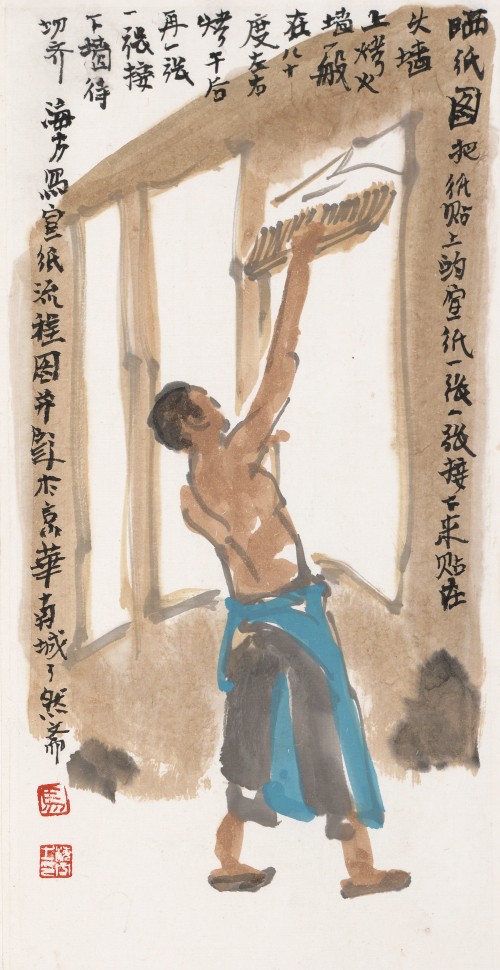 晒纸图 把纸贴上的宣纸一张一张接下来贴在
火墙
上烤火
墙一般
在八十
度左右
烤干后
再一张
一张接
下墙待
切齐 海方寫宣纸流程图并于京華南城了然斋
馬